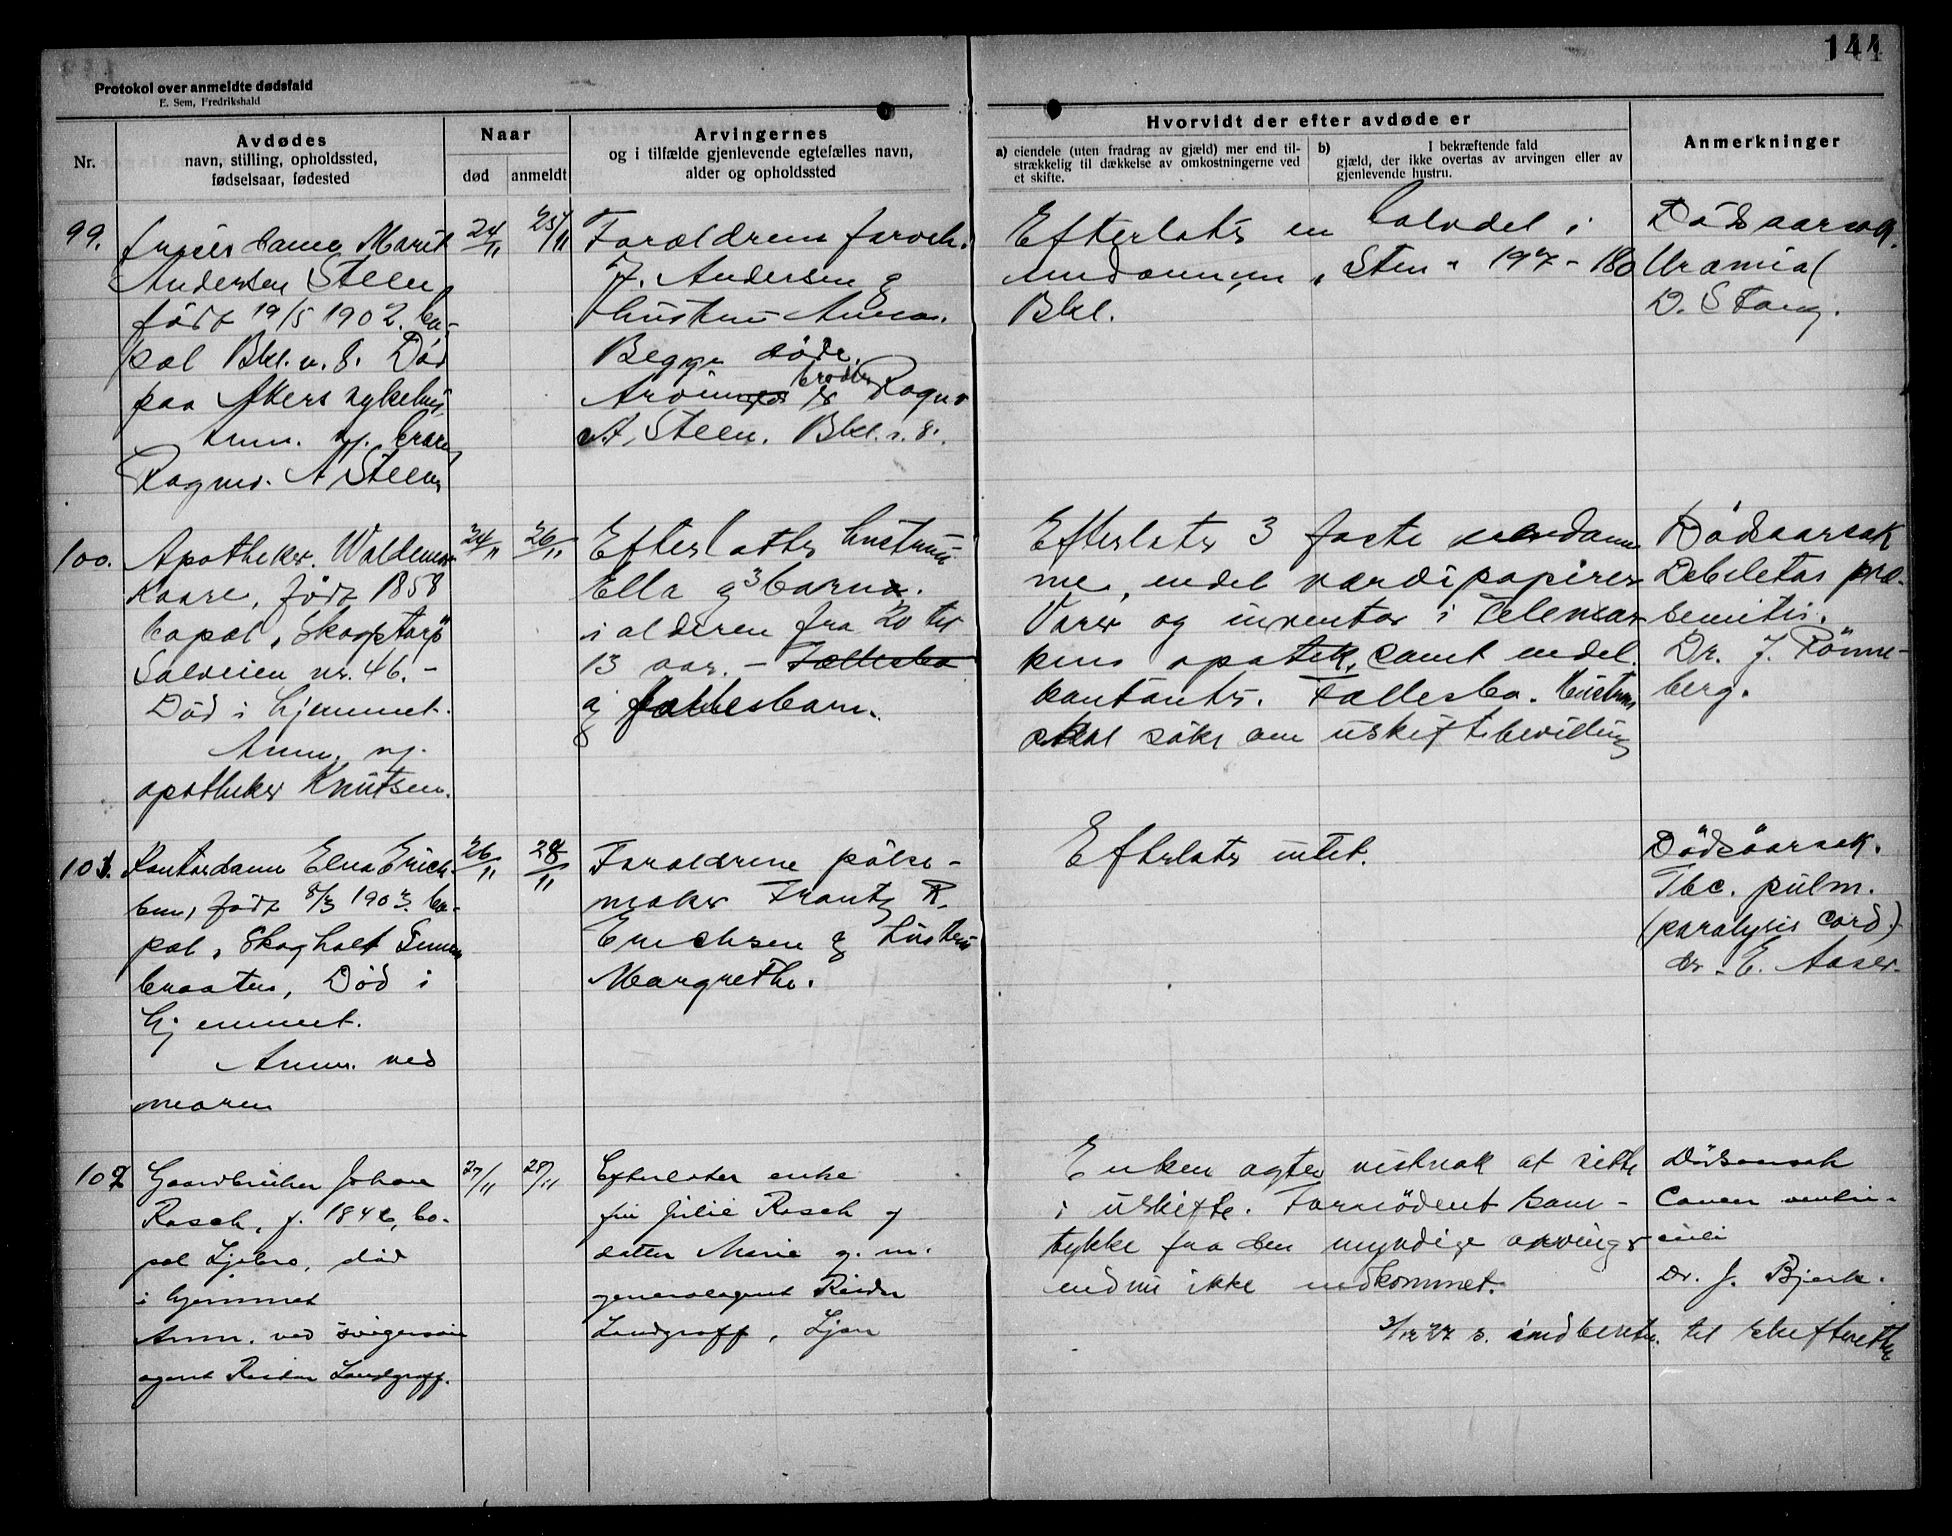 144
Protokol over anmeldte dødsfald
E. Sem, Fredrikshald
Nr.
Avdødes
navn, stilling, opholdssted,
fødselsaar, fødested
Naar
død
anmeldt
Arvingernes
og i tilfælde gjenlevende egtefælles navn,
alder og opholdssted
Hvorvidt der efter avdøde er
a) eiendele (uten fradrag av gjæld) mer end til-
strækkelig til dækkelse av omkostningerne ved
et skifte.
b) I bekræftende fald
gjæld, der ikke overtas av arvingen eller av
gjenlevende hustru.
Anmerkninger
99.
frøken Marit
Andersen Steen
født 19/5 1902. bo-
pæl Bkl. v. 8. Død
paa Akers sykehus,
Anm. v/. bror
Ragnv. A Steen
24/11
25/11
Forældrene
J. Andersen &
hustru Anna.
Begge døde.
Arving er broder Ragnv
A. Steen. Bkl. v. 8.
Efterlater en halvdel i
eiendommen "Sten" 197-180
Bkl.
Dødsaarsak.
Uræmia (
D. Stang.
100.
Apotheker Waldemar
Kaare, født 1858
bopæl "Skogstorp"
Solveien nr. 46. -
Død i hjemmet.
Anm. v/.
apotheker Knutsen.
24/11
26/11
Efterlatter hustru
Ella & 3 barn.
i alderen fra 20 til
13 aar. - Fællesbo
& fællesbarn.
Efterlater 3 faste eiendom
me, endel værdipapirer
Varer og inventar i Telemar
kens apotek, samt endel
kontanter. Fællesbo. Hustruen
skal søke om uskiftebevilling
Dødsaarsak
Debiletas præ-
senilis.
Dr. J. Rønne-
berg.
101.
Kontordame Elna Erich-
sen, født 8/3 1903. bo-
pæl, Skogholt
braaten, Død i
hjemmet.
Anm. ved
moren
26/11
28/11
Forældrene pølse-
maker Frantz R.
Erichsen & hustru
Margrethe.
Efterlater intet.
Dødsaarsak.
Tbc. pulm.
(paralysis cord)
dr. E. Aaser.
102
Gaardbruker Johan
Rasch, f. 1842, bo-
pæl Ljabro, død
i hjemmet
Anm. ved svigersøn
agent Reidar Landgraff.
27/11
28/11
Efterlater enke
fru Julie Rasch og
datter Marie g. m.
generalagent Reidar
Landgraff, Ljan
Enken agter vistnok at sitte
i uskifte. Fornødent sam-
tykke fra den myndige arving
endnu ikke indkommet.
3/12 22 s. indberetn. til skifteretten
Dødsaarsak
Cancer ventri-
culi
Dr. J. Bjerke.